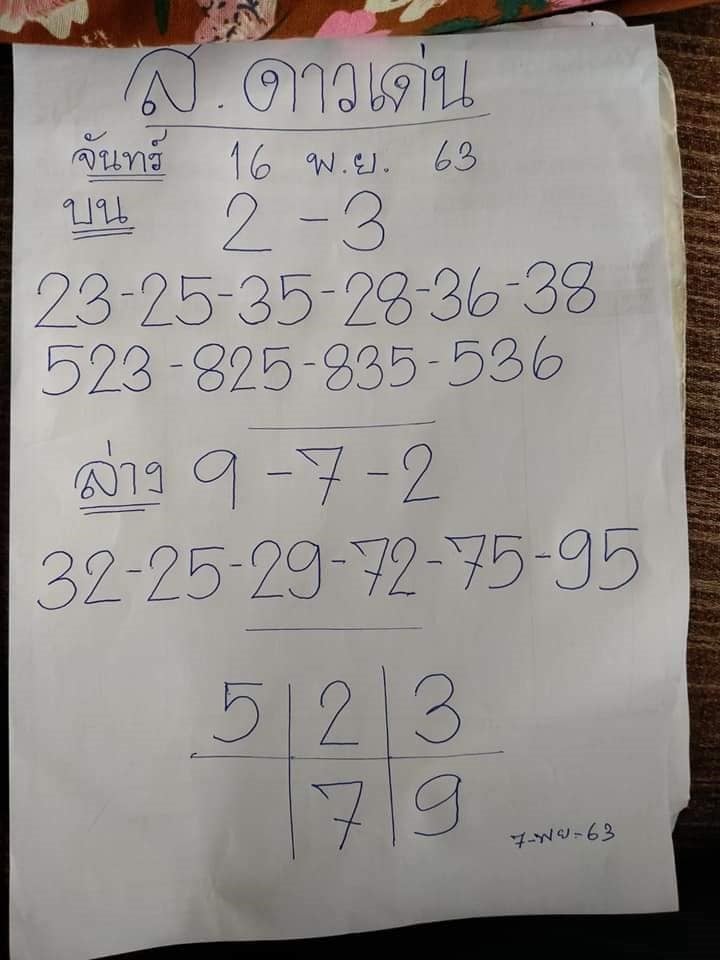 ส. ดาวเด่น
จันทร์ 16 พ.ย. 63
บน 2 - 3
23-25-35-28-36-38
523-825-835-536
ล่าง 9-7-2
32-25-29-72-75-95
5 2 3
7 9
7-พย-63